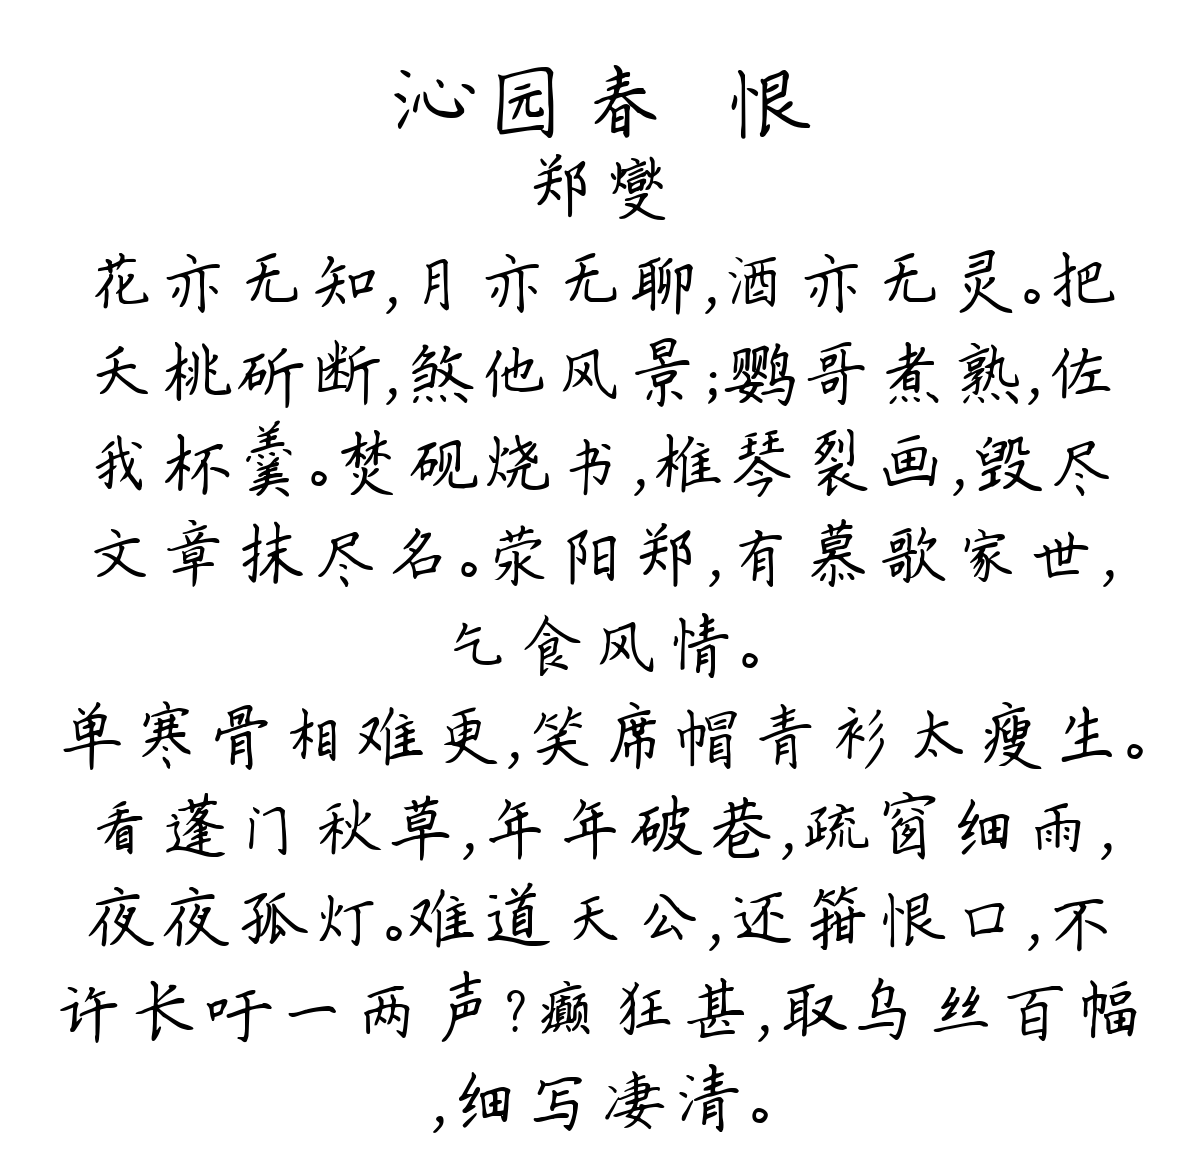 沁园春 恨
郑燮
花亦无知,月亦无聊,酒亦无灵。把
夭桃斫断,煞他风景;鹦哥煮熟,佐
我杯羹。焚砚烧书,椎琴裂画,毁尽
文章抹尽名。荥阳郑,有慕歌家世,
乞食风情。
单寒骨相难更,笑席帽青衫太瘦生。
看蓬门秋草,年年破巷,疏窗细雨,
夜夜孤灯。难道天公,还箝恨口,不
许长吁一两声?癫狂甚,取乌丝百幅
,细写凄清。